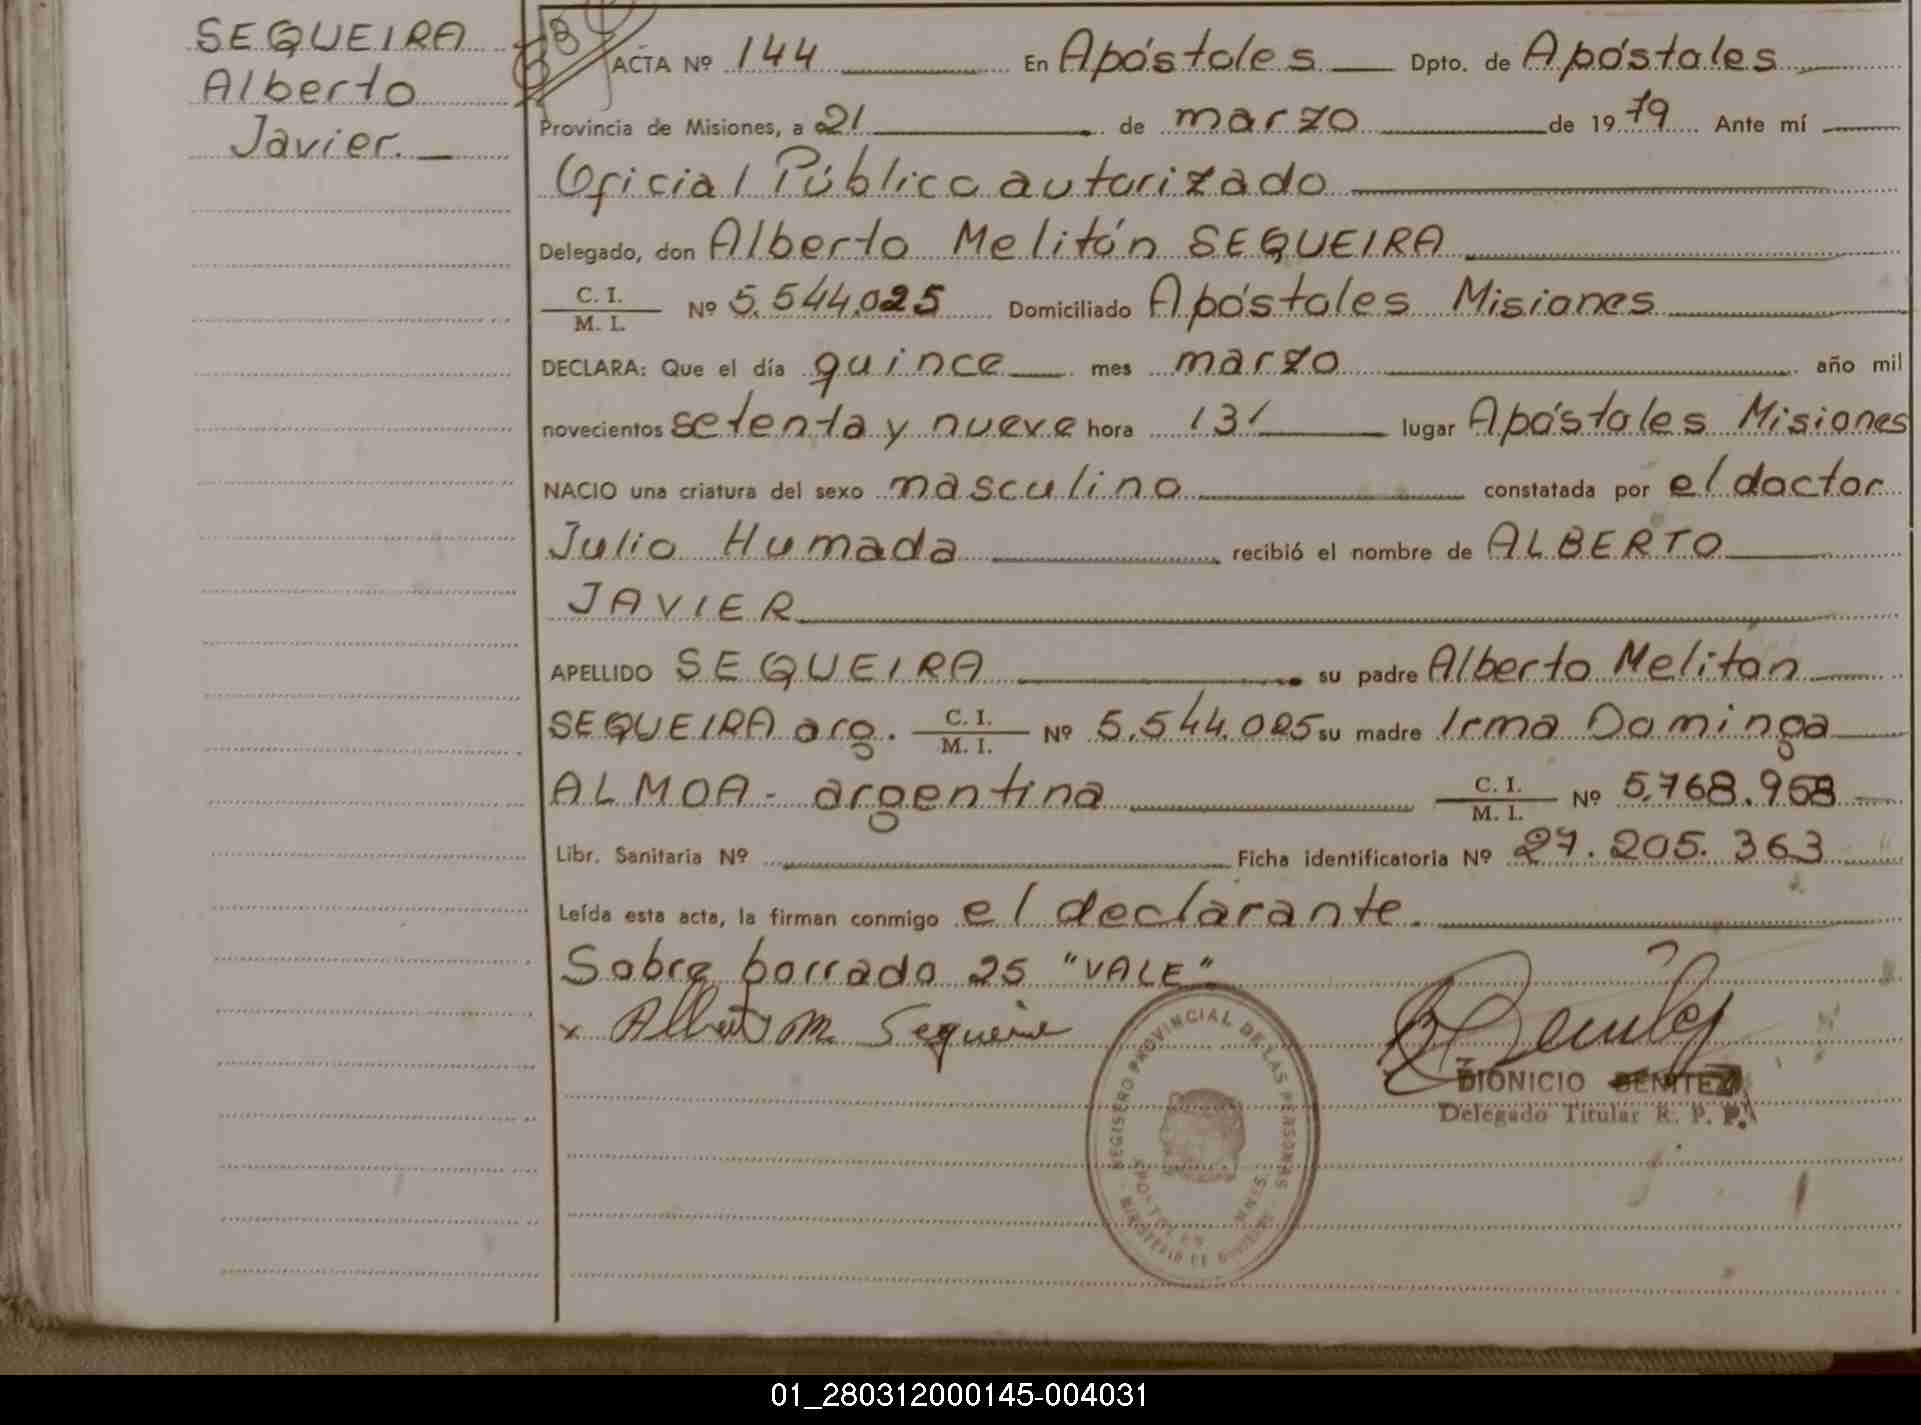 SEQUEIRA
Alberto
Javier.
ACTA Nº 144 En Apóstoles Dpto. de Apóstoles
Provincia de Misiones, a 21 de marzo de 1979 Ante mí
Oficial Público autorizado
Delegado, don Alberto Melitón SEQUEIRA
C. I.
M. I. Nº 5.544.025 Domiciliado Apóstoles Misiones
DECLARA: Que el día quince mes marzo año mil
novecientos setenta y nueve hora 13 lugar Apóstoles Misiones
NACIO una criatura del sexo masculino constatada por el doctor
Julio Humada recibió el nombre de ALBERTO
JAVIER
APELLIDO SEQUEIRA su padre Alberto Meliton
SEQUEIRA arg. C. I.
M. I. Nº 5.544.025 su madre Irma Dominga
ALMOA - argentina C. I.
M. I. Nº 5.768.958
Libr. Sanitaria Nº Ficha identificatoria Nº 27.205.363
Leída esta acta, la firman conmigo el declarante.
Sobre borrado 25 "VALE"
x Alberto M. Sequeira
DIONICIO BENITEZ
Delegado Titular R. P. P.
REGISTRO PROVINCIAL DE LAS PERSONAS
MINISTERIO DE GOBIERNO
01_280312000145-004031